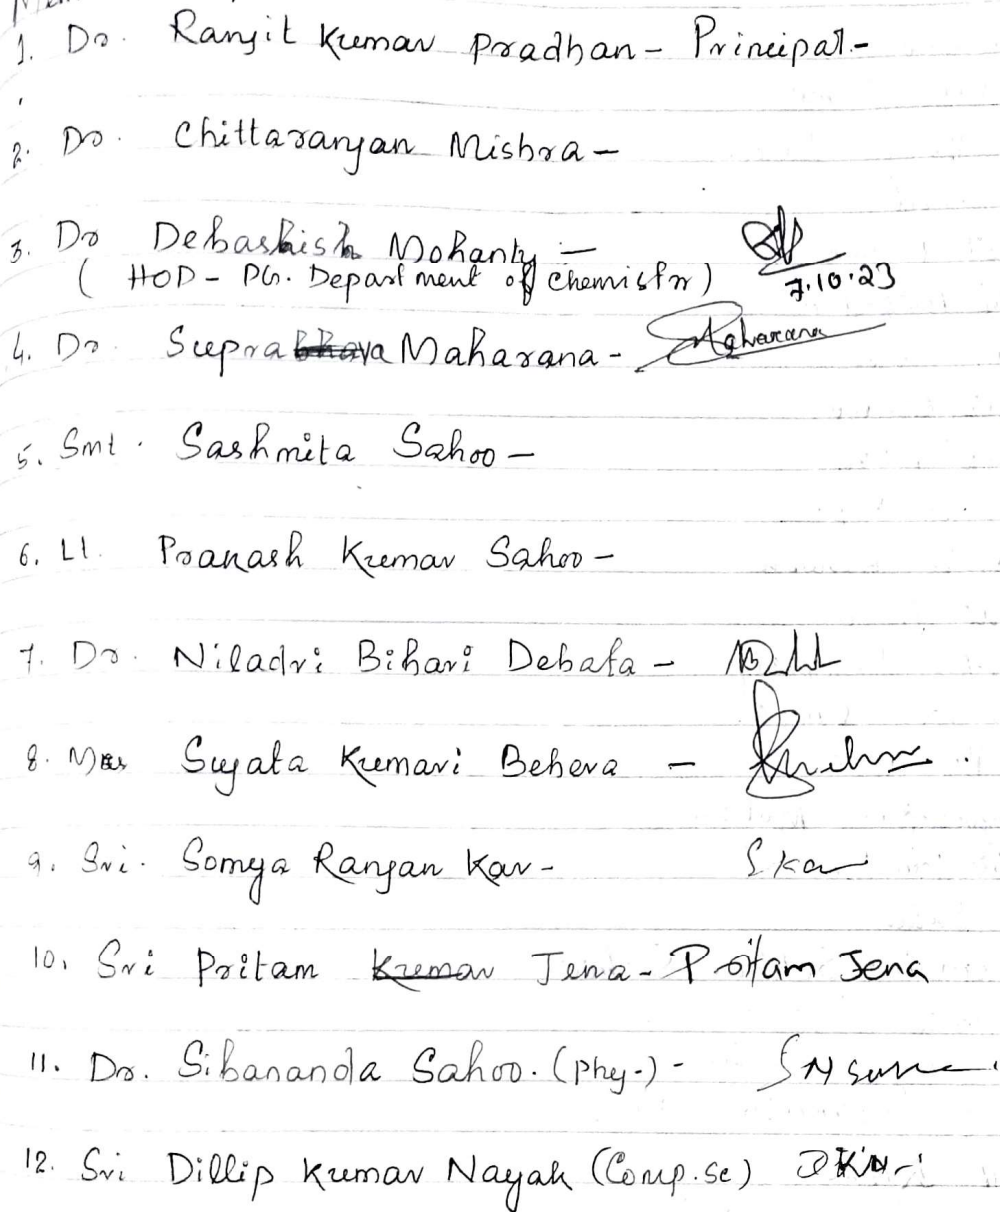 1. Dr. Ranjit Kumar Pradhan - Principal -
2. Dr. Chittaranjan Mishra -
3. Dr Debashish Mohanty -
( HOD - PG. Department of Chemistry )
7.10.23
4. Dr. Supra Maharana - Maharana
5. Smt. Sashmita Sahoo -
6. Lt. Prakash Kumar Sahoo -
7. Dr. Niladri Bihari Debata -
8. Mrs Sujata Kumari Behera -
9. Sri. Somya Ranjan Kar - S Kar
10. Sri Pritam Kumar Jena - Pritam Jena
11. Dr. Sibananda Sahoo. (Phy.) -
12. Sri Dillip Kumar Nayak (Comp.sc) DKN